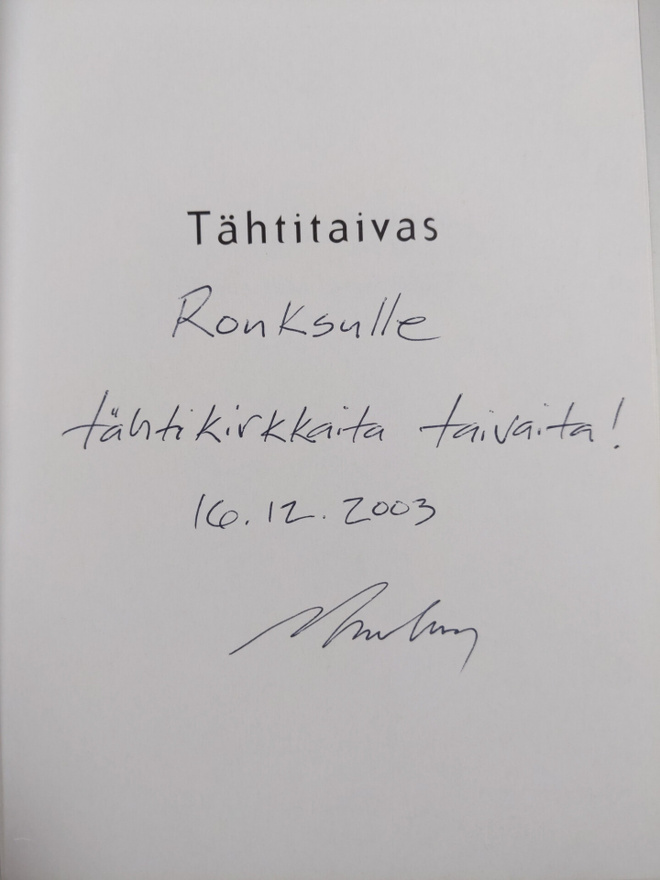 Tähtitaivas
Ronksulle
tähtikirkkaita taivaita!
16.12.2003